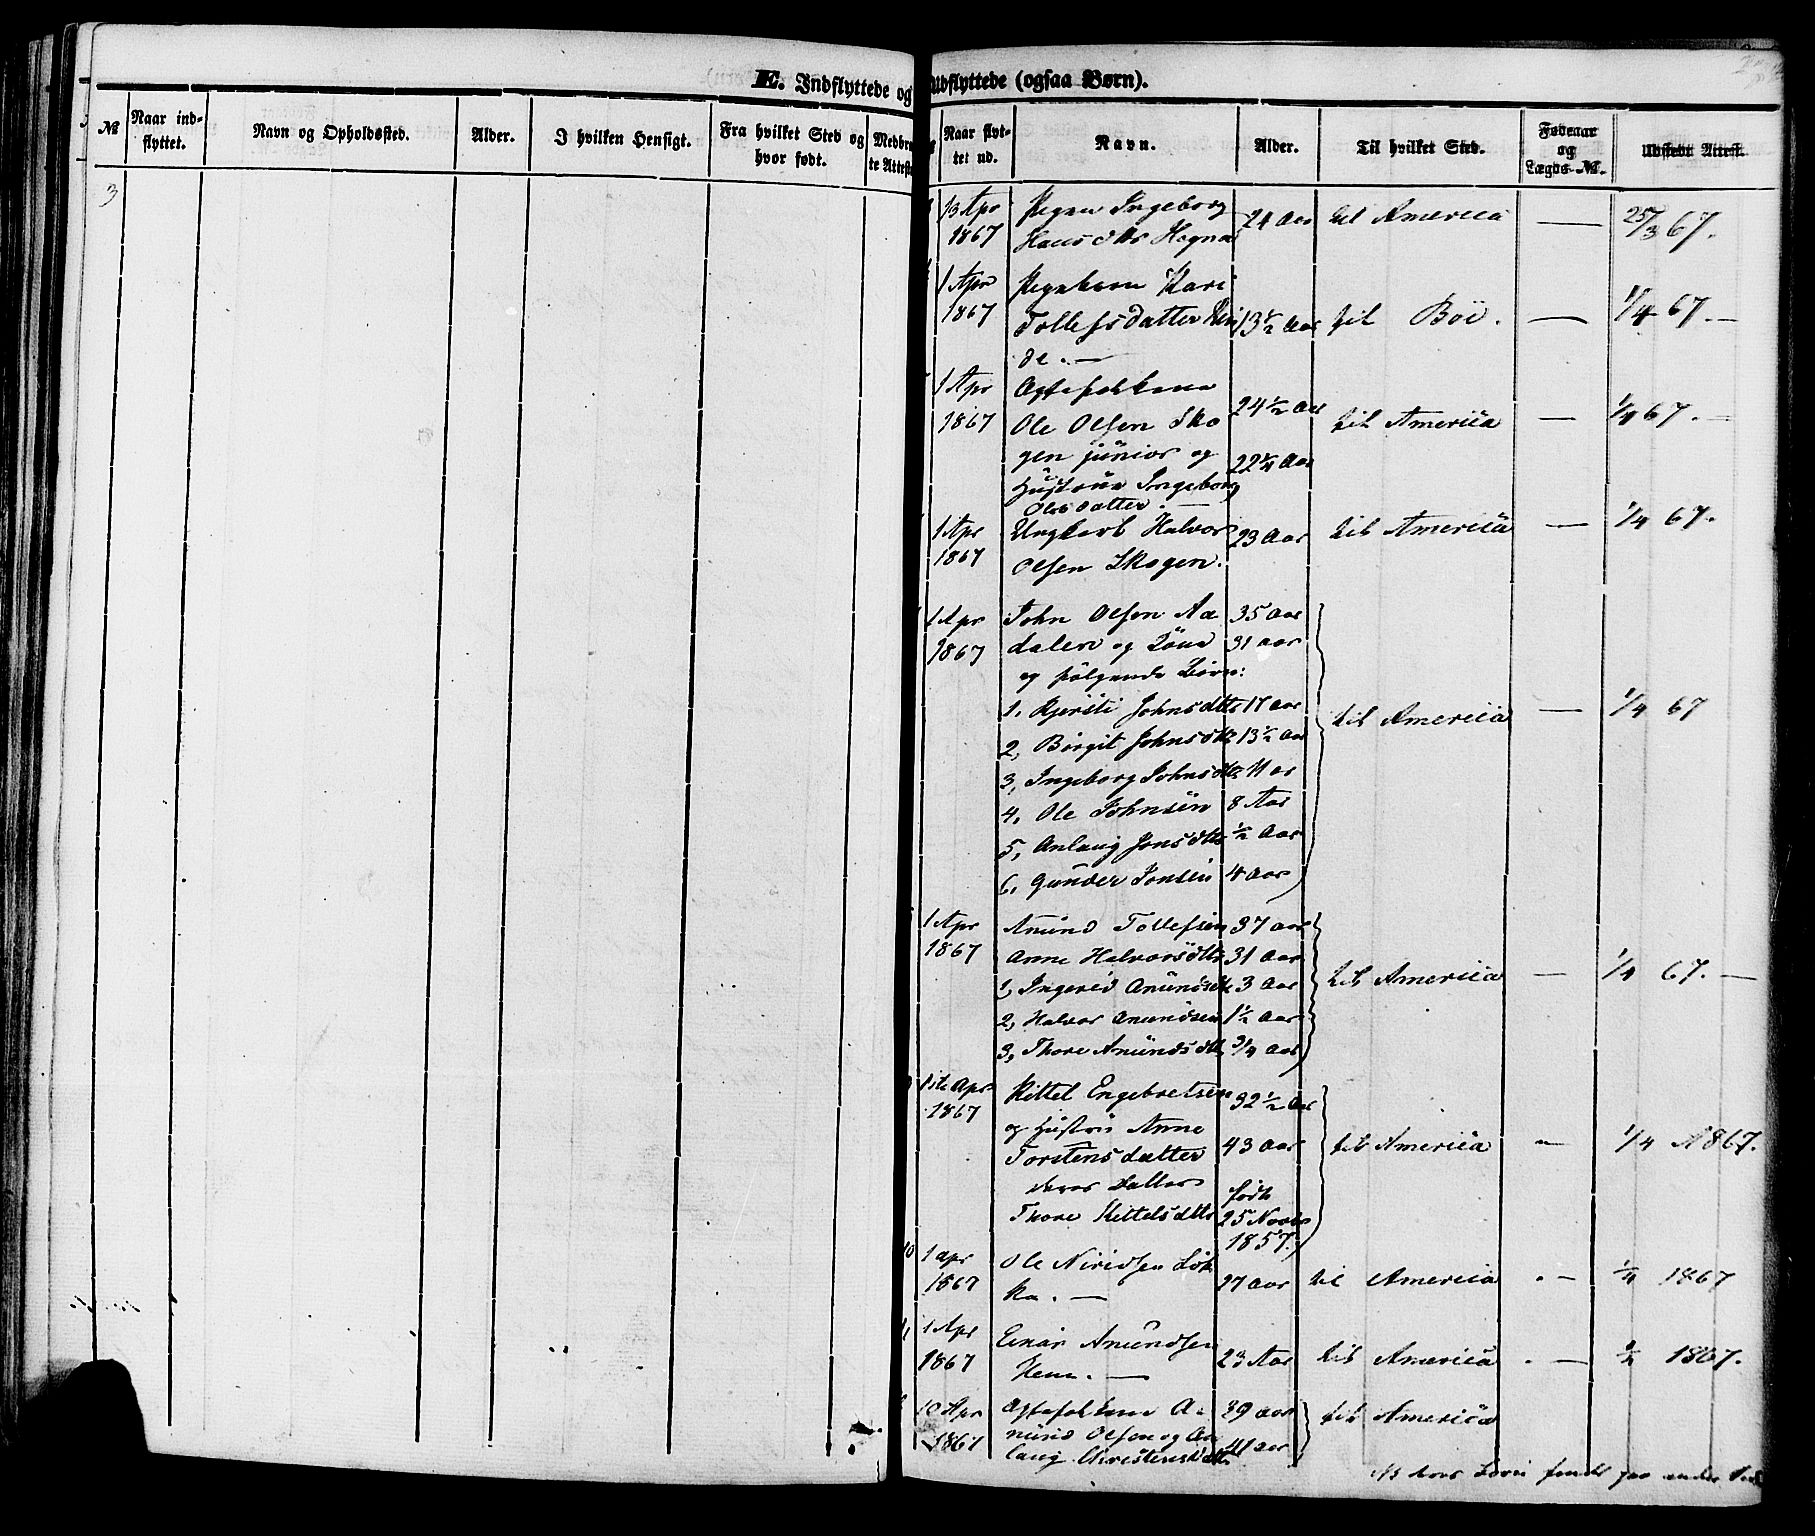 E. Indflyttede og Udflyttede (ogsaa Børn).
№ Naar indflyttet. Navn og Opholdssted. Alder. I hvilken Hensigt. Fra hvilket Sted og hvor født. Medbragte Attester
3
Naar flyttet ud. Navn. Alder. Til hvilket Sted. Fødeaar og Lægds-№. Udstedt Attest.
13 Apr Pigen Ingeborg 24 Aar til America — 25/3 67.
1867 Hans dttr Hegna
1 Apr Pigebarn Kari
1867 Tollefsdatter 13½ Aar til Böe. — 1/4 67. —
de. —
1 Apr Ægtefolkene 24½ Aar
1867 Ole Olsen Sko til America — 1/4 67. —
gen junior og 22¼ Aar
Hustrue Ingeborg
Olesdatter. —
1 Apr Ungkarl Halvor 23 Aar til America — 1/4 67.
1867 Olsen Skogen.
1 Apr John Olsen Aa 35 Aar
1867 dalen og 31 Aar
og følgende Börn:
1, Kjersti Johnsdttr 17 Aar til America — 1/4 67
2, Birgit Johnsdtr 13½ Aar
3, Ingeborg Johnsdtr 11 Aar
4, Ole Johnsen 8 Aar
5, Anlaug Jonsdttr ½ Aar
6, Gunder Jonsen 4 Aar
1 Apr Anund Tollefsen 37 Aar
1867 Anne Halvorsdttr 31 Aar
1, Ingerid Anundsdtr 3 Aar til America — 1/4 67. —
2, Halvor Anundsen 1½ Aar
3, Thore Anundsdtt 3/4 Aar
1ste Apr Kittel Engebretsen 32½ Aar
1867 og Hustru Anne
Torstensdatter 43 Aar til America — 1/4 1867.
deres Datter født
Thore Kittelsdttr 25 Novbr
1857.
10 1 Apr Ole Niridsen Lök
1867 ka. — 27 Aar til America — 1/4 1867
11 1 Apr Einar Anundsen
1867 23 Aar til America. — 1/2 1867.
10 Apr Ægtefolkene A 39 Aar til America
1867 nund Olsen og An
laug Christensdatt 41 Aar
NB børn paa anden Side